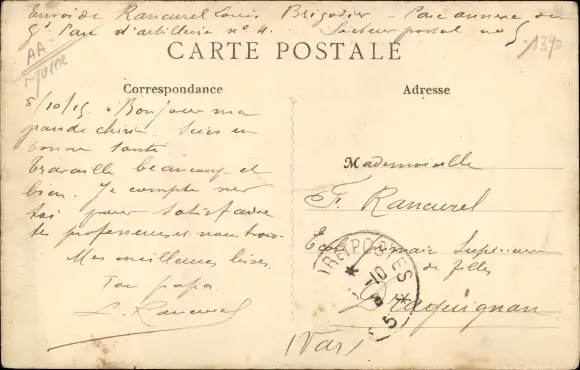 Envoi de Rancurel Louis Brigadier - Parc annexe du
gd Parc d'artillerie n° 4. Secteur postal n° 5
AA
CARTE POSTALE
Correspondance
Adresse
5/10/15. Bonjour ma
grande chérie. Suis en
bonne santé.
Travaille beaucoup et
bien. Je compte sur
toi pour satisfaire
tes professeurs et nous
Mes meilleures bises.
Ton papa
L. Rancurel
Mademoiselle
F. Rancurel
Ecole Primaire Supérieure
de filles
Draguignan
(Var)
POSTES
10
5